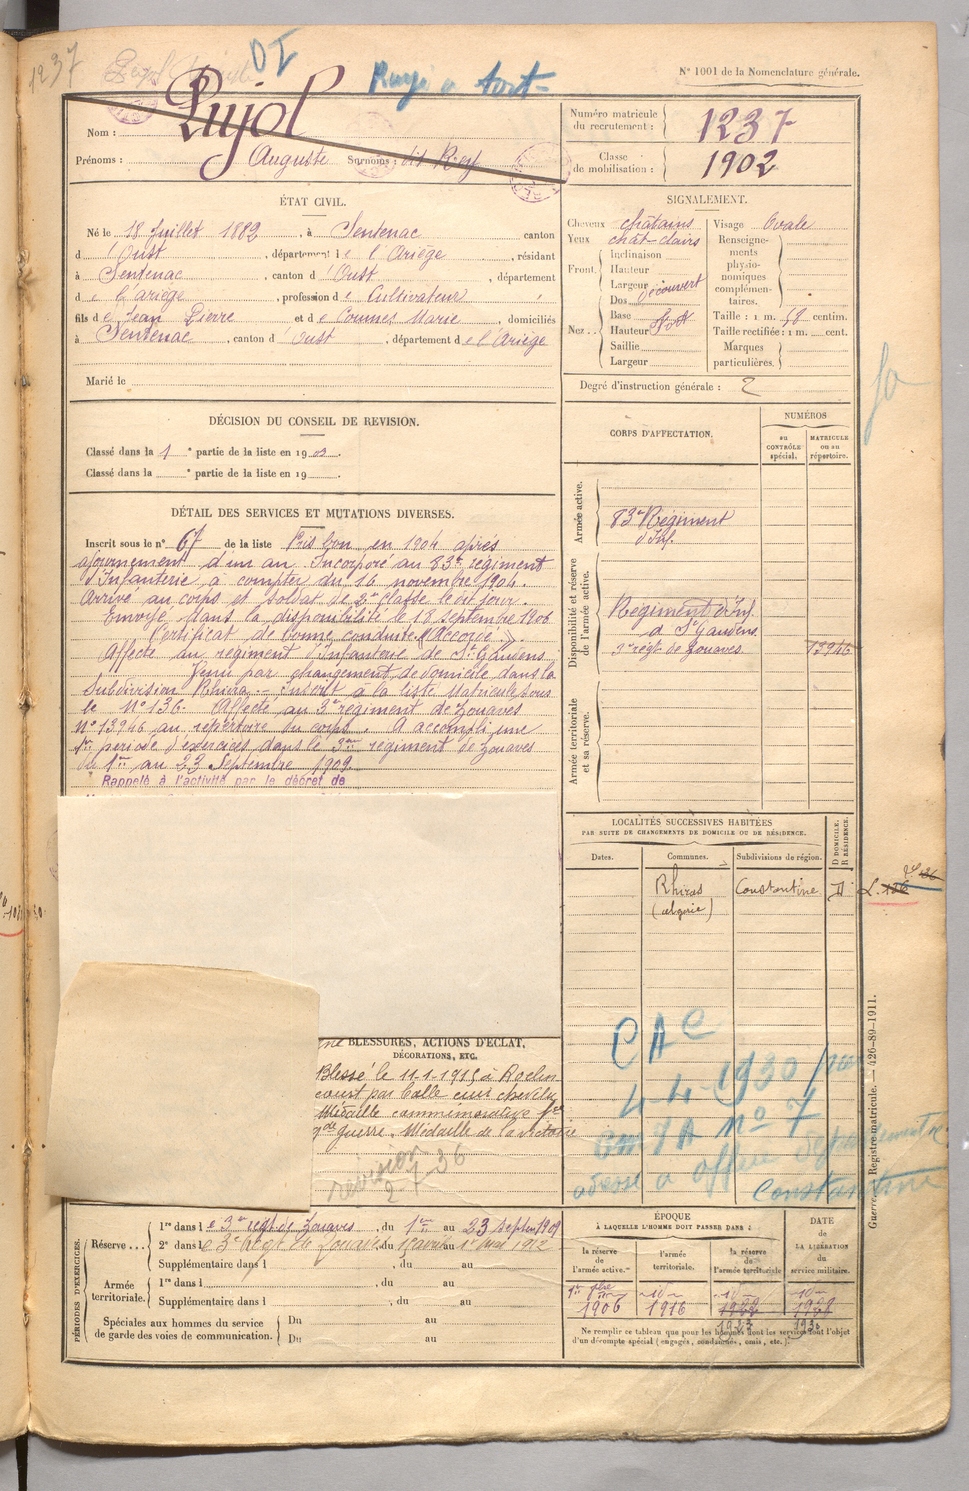 1237
DI
Rayé à tort
N° 1001 de la Nomenclature générale.
Nom : Pujol
Prénoms : Auguste Surnoms : dit Rey
Numéro matricule du recrutement : 1237
Classe de mobilisation : 1902
ÉTAT CIVIL.
Né le 18 Juillet 1882, à Sentenac canton
d'Oust, département de l'Ariège, résidant
à Sentenac, canton d'Oust, département
de l'ariège, profession de Cultivateur
fils de Jean Pierre et de Coumes Marie, domiciliés
à Sentenac, canton d'Oust, département de l'Ariège
Marié le
SIGNALEMENT.
Cheveux châtains
Yeux chât-clairs
Front. Inclinaison
Hauteur
Largeur découvert
Nez. Dos
Base
Hauteur fort
Saillie
Largeur
Visage Ovale
Renseignements physionomiques complémentaires.
Taille : 1 m. 58 centim.
Taille rectifiée : 1 m. cent.
Marques particulières.
Degré d'instruction générale : 2
DÉCISION DU CONSEIL DE REVISION.
Classé dans la 1 e partie de la liste en 1903.
Classé dans la e partie de la liste en 19
CORPS D'AFFECTATION.
NUMÉROS
au CONTRÔLE spécial.
MATRICULE ou au répertoire.
Armée active.
83e Régiment
d'Inf.
Disponibilité et réserve de l'armée active.
Régiment d'Inf.
d St Gaudens
3e regt de zouaves 13946
Armée territoriale et sa réserve.
DÉTAIL DES SERVICES ET MUTATIONS DIVERSES.
Inscrit sous le n° 67 de la liste Pris bon en 1904 après
ajournement d'un an. Incorporé au 83e régiment
d'Infanterie à compter du 16 novembre 1904.
Arrivé au corps et soldat de 2e classe le dit jour.
Envoyé dans la disponibilité le 18 septembre 1906
Certificat de bonne conduite "Accordé".
Affecté au régiment d'Infanterie de St Gaudens
Venu par changement de domicile dans la
Subdivision Rhiras - Inscrit à la liste Matricule sous
le N° 136. Affecté au 3e régiment de Zouaves
N° 13946 au répertoire du corps. A accompli une
1re période d'exercices dans le 3me régiment de zouaves
du 1er au 23 Septembre 1909.
Rappelé à l'activité par le décret de
LOCALITÉS SUCCESSIVES HABITÉES
PAR SUITE DE CHANGEMENTS DE DOMICILE OU DE RÉSIDENCE.
Dates. Communes. Subdivisions de région. D DOMICILE. R RÉSIDENCE.
Rhiras Constantine D
(algérie)
CAC
4-4-1930
n° 7
adressé à office départemental
Constantine
BLESSURES, ACTIONS D'ÉCLAT,
DÉCORATIONS, ETC.
Blessé le 11-1-1915 à Roclin
court par balle
Médaille commémorative
gde guerre. Médaille de la victoire
PÉRIODES D'EXERCICES.
Réserve... 1re dans le 3e regt de Zouaves, du 1er au 23 Septemb 1909
2e dans le 3e Regt de Zouaves du 15 avril au 1er Mai 1912
Supplémentaire dans l , du au
Armée territoriale. 1re dans l du au
Supplémentaire dans l , du au
Spéciales aux hommes du service de garde des voies de communication. Du au
Du au
ÉPOQUE
À LAQUELLE L'HOMME DOIT PASSER DANS :
la réserve de l'armée active.
l'armée territoriale.
la réserve de l'armée territoriale
DATE DE LA LIBÉRATION du service militaire.
1906 1916 1922 1928
1923 1930
Ne remplir ce tableau que pour les hommes dont les services font l'objet
d'un décompte spécial (engagés, condamnés, omis, etc.).
Guerre. Registre matricule. — 426-89-1911.